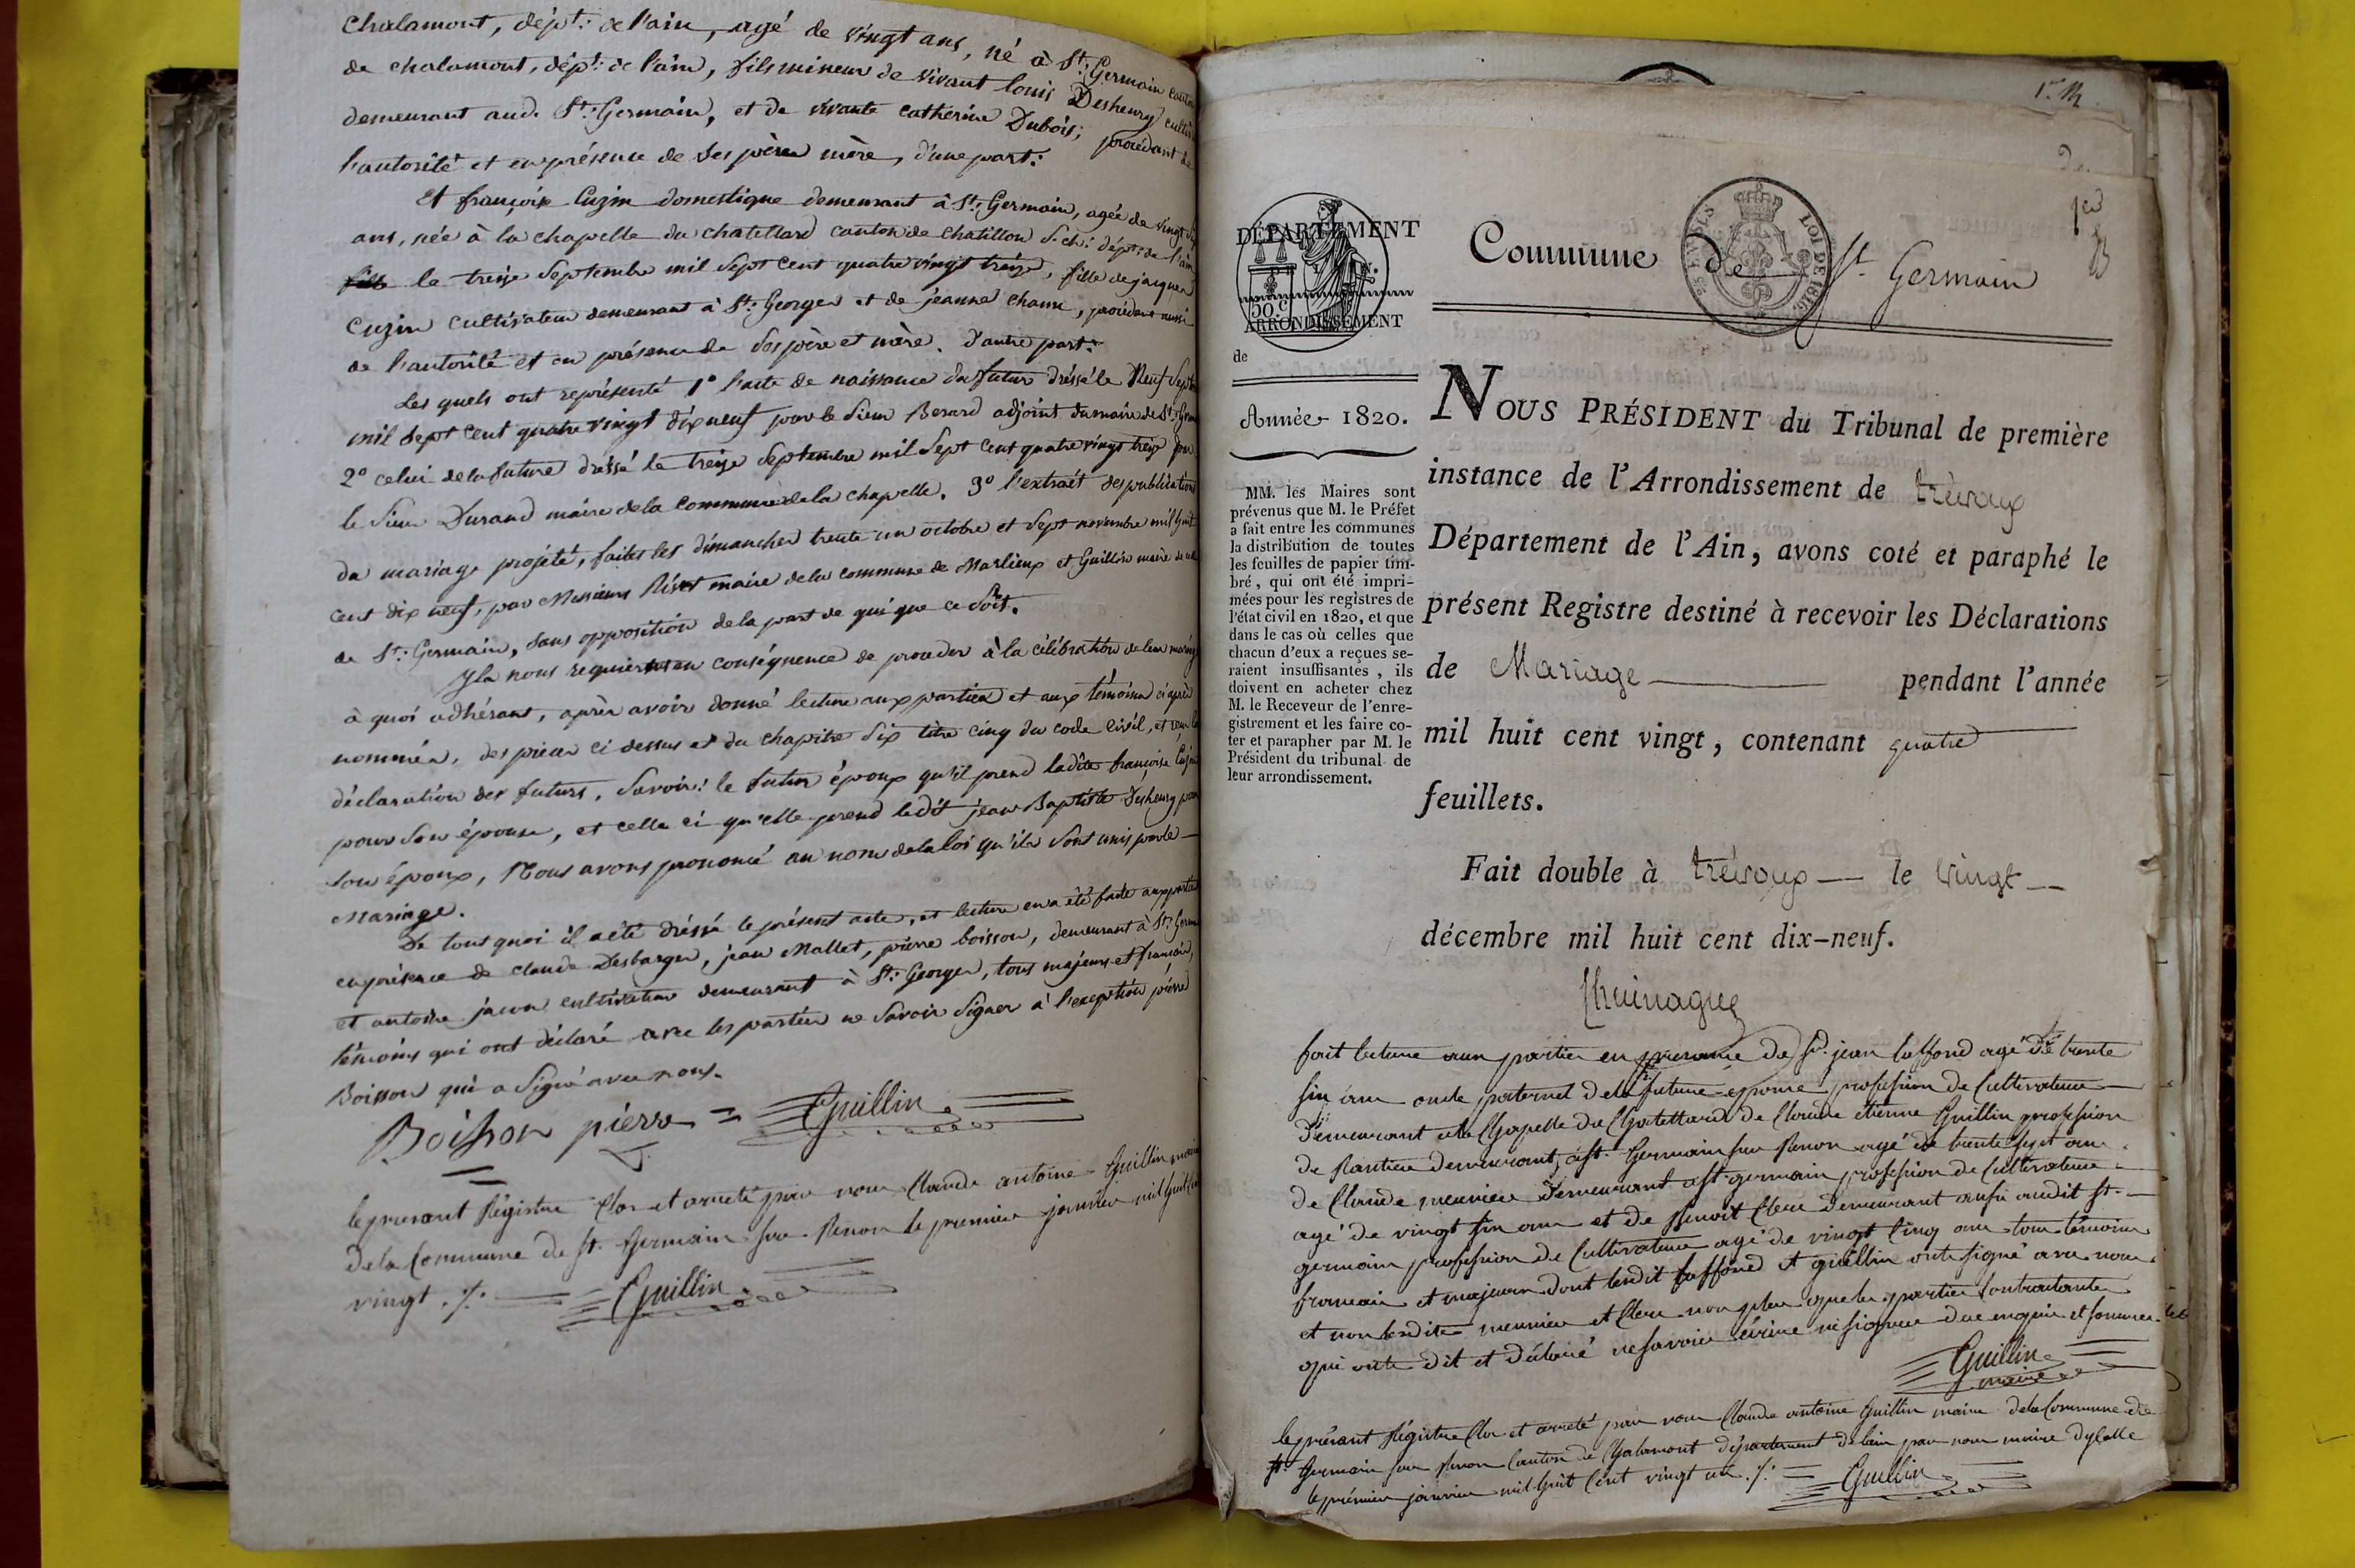 Chalamont, dépt: de l'ain, agé de vingt ans, né à St: Germain canton
de chalamont, dépt: de l'ain, fils mineur de vivant louis Desheury cultiv
demeurant aud. St: Germain, et de vivante catherine Dubois; procédant de
l'autorité et en présence de ses père mère, d'une part:
Et françoise Cuzin domestique demeurant à St: Germain, agée de vingt six
ans, née à la chapelle du chatellard canton de chatillon s. ch: dépt: de l'ain
le treize Septembre mil Sept cent quatre vingt treize, fille de jacques
Cuzin cultivateur demeurant à St: Georges et de jeanne Chanu, procédant aussi
de l'autorité et en présence de ses père et mère. d'autre part:
Les quels ont représenté 1° l'acte de naissance du futur dréssé le Neuf Sept
mil Sept cent quatre vingt dix neuf par le Sieur Berard adjoint du maire de St: Germ
2° celui de la future dréssé le treize Septembre mil Sept cent quatre vingt treize par
le Sieur Durand maire de la commune de la chapelle. 3° l'extrait des publications
du mariage projeté, faites les dimanches trente un octobre et Sept novembre mil huit
cent dix neuf, par Messieurs Rivet maire de la commune de Marlieux et Guillin maire de
de St: Germain, sans opposition de la part de qui que ce soit.
Ils nous requièrent en conséquence de procéder à la célébration de leur mariage
à quoi adhérant, après avoir donné lecture aux parties et aux témoins ci après
nommés, des pièces ci dessus et du chapitre Six titre cinq du code civil, et reçu la
déclaration des futurs, Savoir: le futur époux qu'il prend ladite françoise Cuzin
pour son épouse, et celle ci qu'elle prend ledit jean Baptiste Desheury pour
son époux, Nous avons prononcé au nom de la loi qu'ils sont unis par le
Mariage.
De tout quoi il a été dréssé le présent acte, et lecture en a été faite aux parties
en présence de claude Desbarges, jean Mallet, pierre boisson, demeurant à St: Germ
et antoine jacon cultivateur demeurant à St: Georges, tous majeurs et français,
témoins qui ont déclaré avec les parties ne savoir signer à l'exception pierre
Boisson qui a signé avec nous.
Boisson pierre = Guillin
le présent Régistre Clos et arreté par nous Claude antoine Guillin maire
de la Commune de St. Germain sur Renon le premier janvier mil huit cent
vingt ./. Guillin
DÉPARTEMENT
DE L'AIN.
50.C
ARRONDISSEMENT
de
Année 1820.
MM. les Maires sont
prévenus que M. le Préfet
a fait entre les communes
la distribution de toutes
les feuilles de papier tim-
bré, qui ont été impri-
mées pour les registres de
l'état civil en 1820, et que
dans le cas où celles que
chacun d'eux a reçues se-
raient insuffisantes, ils
doivent en acheter chez
M. le Receveur de l'enre-
gistrement et les faire co-
ter et parapher par M. le
Président du tribunal de
leur arrondissement.
Commune de St. Germain
LOI DE 1816
NOUS PRÉSIDENT du Tribunal de première
instance de l'Arrondissement de trévoux
Département de l'Ain, avons coté et paraphé le
présent Registre destiné à recevoir les Déclarations
de Mariage pendant l'année
mil huit cent vingt, contenant quatre
feuillets.
Fait double à trévoux le vingt
décembre mil huit cent dix-neuf.
fait lecture aux parties en presence de Sr. jean laffond agé de trente
sin ans oncle paternel de la future epouse profession de Cultivateur
Demeurant a la Chapelle du Chatellard de Claude étienne Guillin profession
de Rantier demeurant a St. Germain sur Renon agé de trente sept ans
de Claude meunier Demeurant a St germain profession de Cultivateur
agé de vingt sin ans et de Benoit Clerc Demeurant ausi audit St.
germain profession de Cultivateur agé de vingt Cinq ans tous témoins
francais et majeurs dont lesdit laffond et guillin onte signé avec nous
et non lesdits meunier et Clerc non plus que les parties Contractantes
qui onte dit et déclaré ne savoir écrire ni signer de ce enquis et sommés
Guillin
maire
le présant Régistre Clos et arreté par nous Claude antoine Guillin maire de la Commune de
St. Germain sur Renon Canton de Chalamont département de l'ain par nous maire dycelle
le prémier janvier mil huit Cent vingt un ./. Guillin